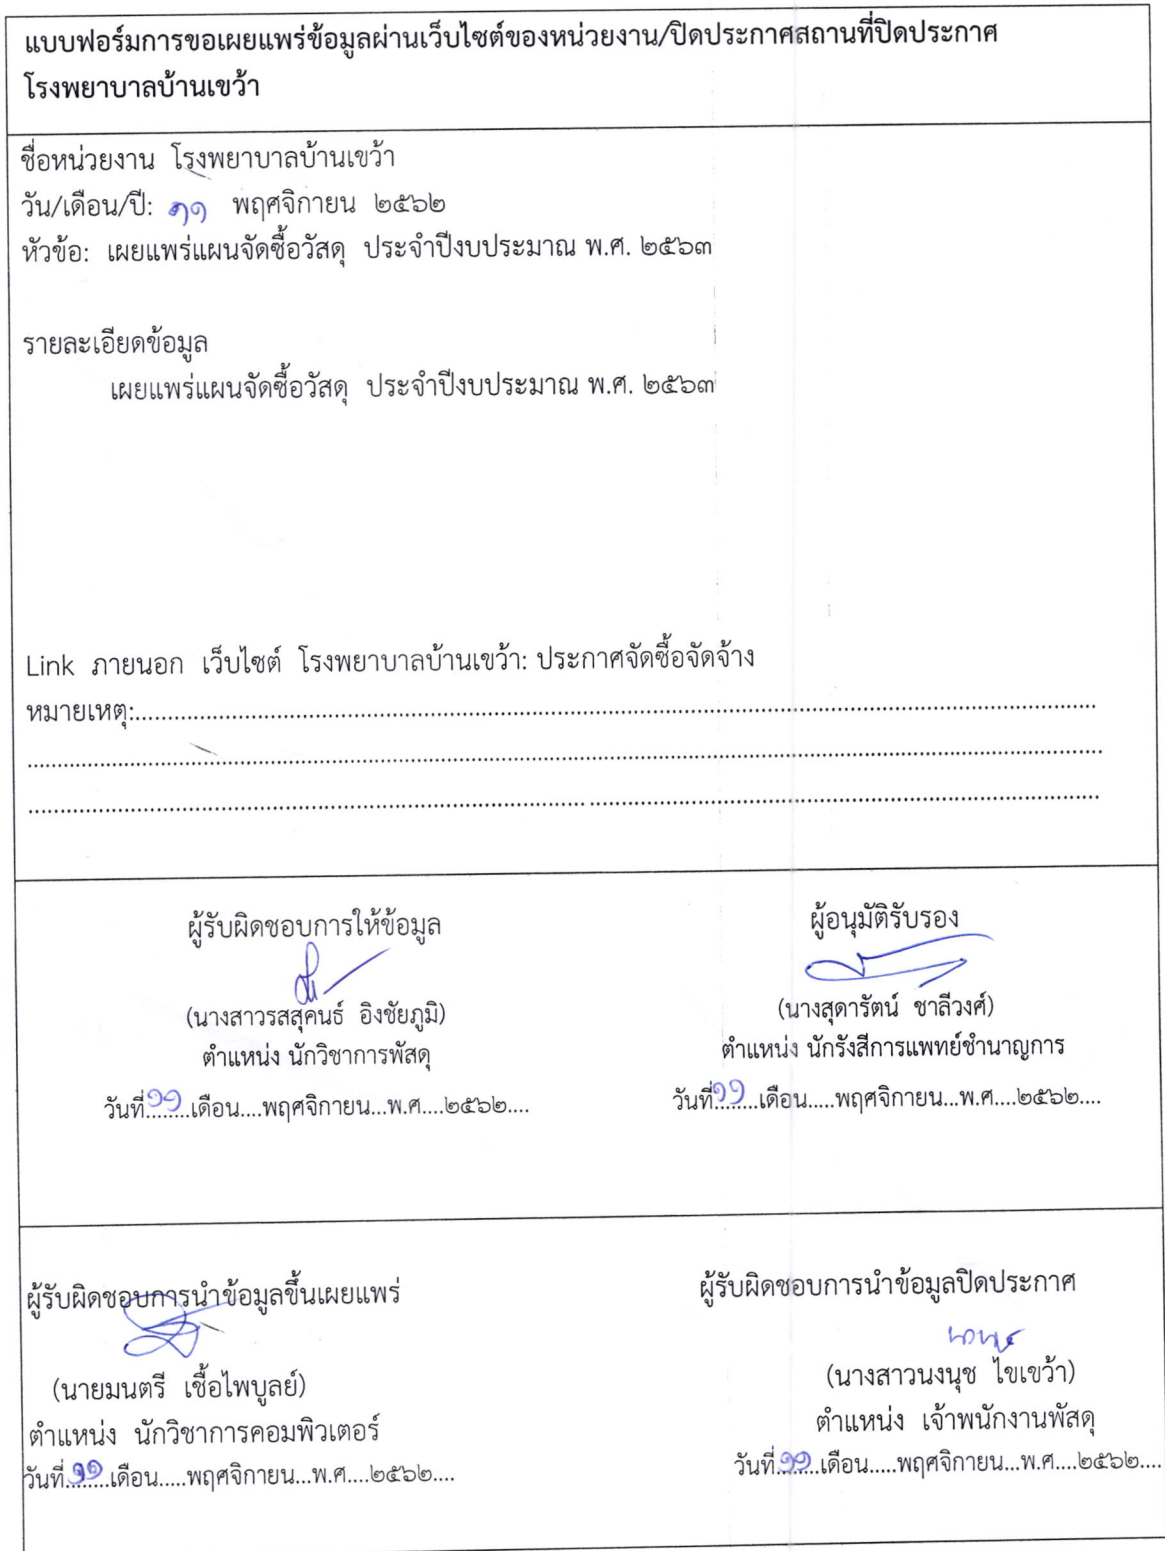 แบบฟอร์มการขอเผยแพร่ข้อมูลผ่านเว็บไซต์ของหน่วยงาน/ปิดประกาศสถานที่ปิดประกาศ
โรงพยาบาลบ้านเขว้า
ชื่อหน่วยงาน โรงพยาบาลบ้านเขว้า
วัน/เดือน/ปี: ๑๑ พฤศจิกายน ๒๕๖๒
หัวข้อ: เผยแพร่แผนจัดซื้อวัสดุ ประจำปีงบประมาณ พ.ศ. ๒๕๖๓
รายละเอียดข้อมูล
เผยแพร่แผนจัดซื้อวัสดุ ประจำปีงบประมาณ พ.ศ. ๒๕๖๓
Link ภายนอก เว็บไซต์ โรงพยาบาลบ้านเขว้า: ประกาศจัดซื้อจัดจ้าง
หมายเหตุ:....................
ผู้รับผิดชอบการให้ข้อมูล
(นางสาวรสสุคนธ์ อิงชัยภูมิ)
ตำแหน่ง นักวิชาการพัสดุ
วันที่ ๑๑ เดือน....พฤศจิกายน...พ.ศ....๒๕๖๒....
ผู้อนุมัติรับรอง
(นางสุดารัตน์ ชาลีวงศ์)
ตำแหน่ง นักรังสีการแพทย์ชำนาญการ
วันที่ ๑๑ เดือน.....พฤศจิกายน...พ.ศ....๒๕๖๒....
ผู้รับผิดชอบการนำข้อมูลขึ้นเผยแพร่
(นายมนตรี เชื้อไพบูลย์)
ตำแหน่ง นักวิชาการคอมพิวเตอร์
วันที่ ๑๑ เดือน.....พฤศจิกายน...พ.ศ....๒๕๖๒....
ผู้รับผิดชอบการนำข้อมูลปิดประกาศ
(นางสาวนงนุช ไขเขว้า)
ตำแหน่ง เจ้าพนักงานพัสดุ
วันที่ ๑๑ เดือน.....พฤศจิกายน...พ.ศ....๒๕๖๒....